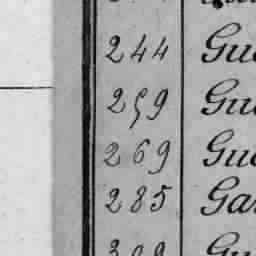 244 Gu
259 Gu
269 Gu
285 Ga